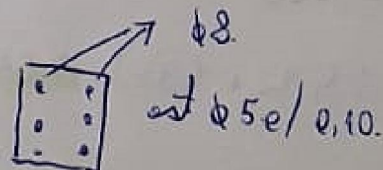 ϕ8.
est ϕ5 c/ 0,10.